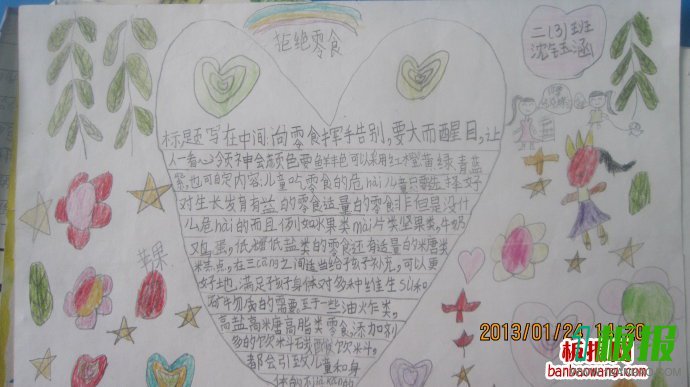 拒绝零食
二(3)班
沈钰涵
标题写在中间:向零食挥手告别,要大而醒目,让
人一看心领神会颜色要鲜丰色可以采用红橙黄绿青蓝
紫,也可自定内容:儿童吃零食的危hài儿童只要选择好
对生长发育有益的零食适量的零食非但是没什
么危hài的而且例如水果类mài片类坚果类,牛奶
鸡蛋,低糖低盐类的零食还有适量的米唐类
糕点,在三cān之间适当给孩子补充,可以更
好地满足孩子身体对多种维生sù和
矿牛勿戋的需要至于一些油炸类,
高盐高米唐高脂类零食,添加剂
多的饮料碳酸饮料,
都会引致儿童和身
体的
苹果
2013/01/24
banbaowang.com